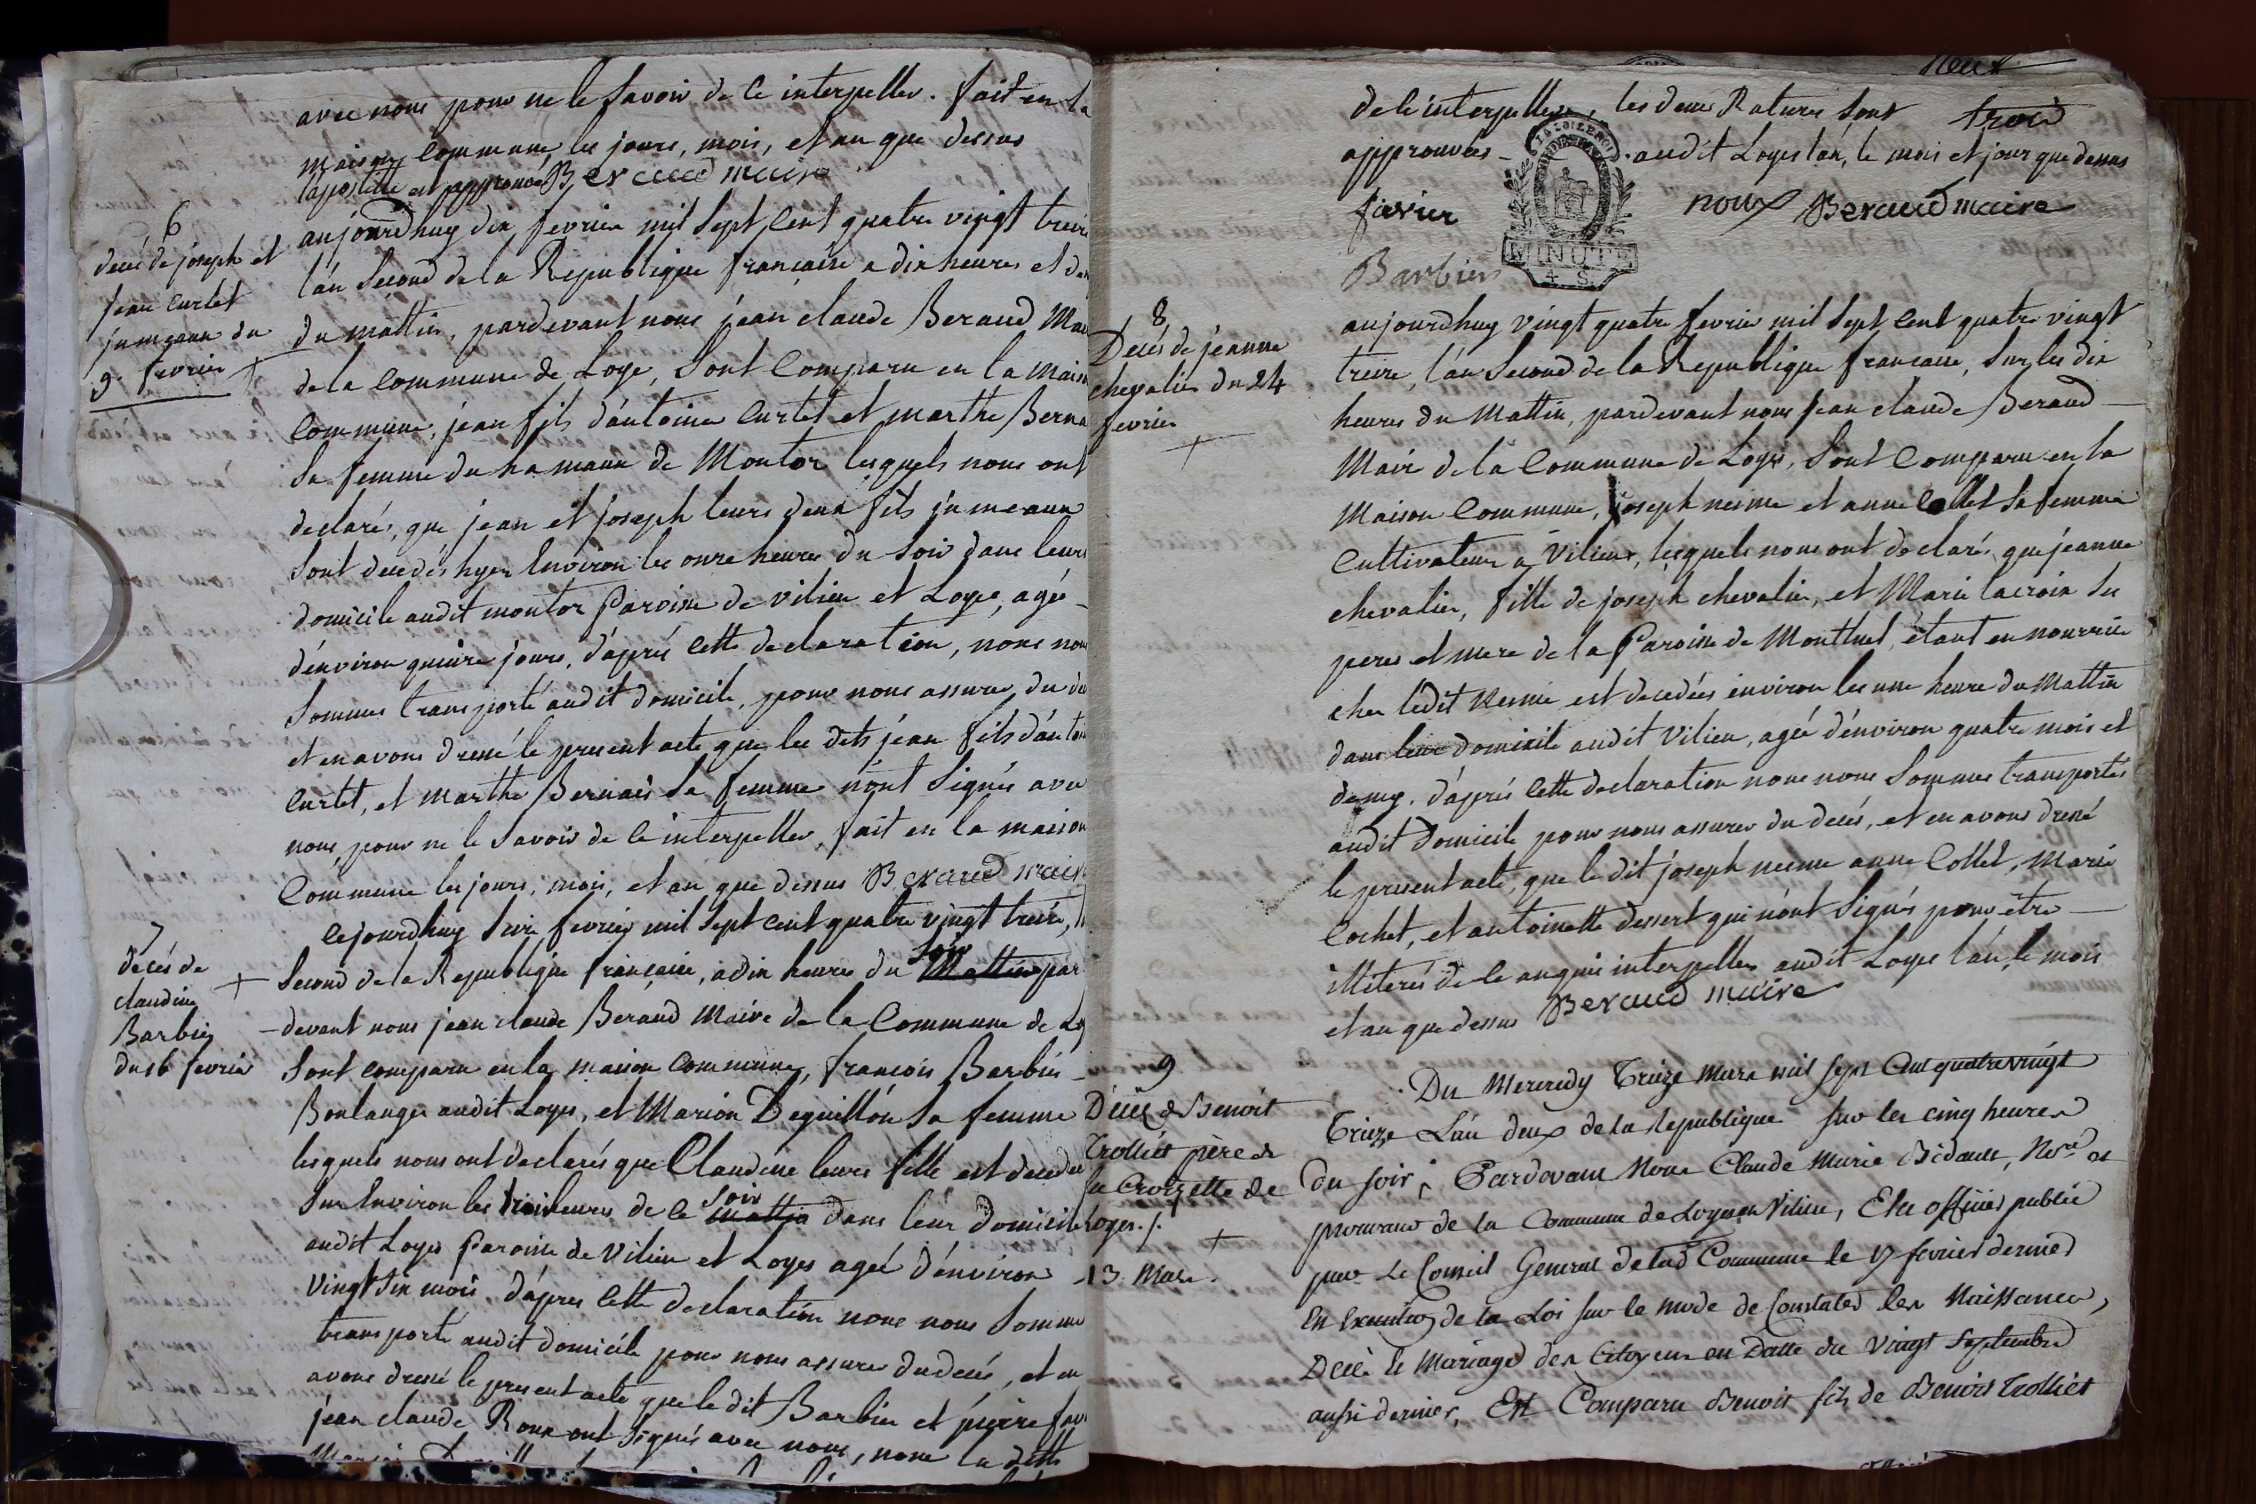 avec nous pour ne le savoir de ce interpeller. fait en la
maison commune les jours, mois, et an que dessus
lapostille est approuvé Beraud maire
6
decés de joseph et
jean curtet
jumeaux du
9 fevrier
aujourdhuy dix fevrier mil sept cent quatre vingt treize
l'an second de la Republique française a dix heures et de
du mattin, pardevant nous jean claude Beraud Mai
de la commune de Loye, sont comparu en la maiso
commune, jean fils d'antoine curtet et marthe Berna
sa femme du hamaux de Montor lesquels nous ont
declarés, que jean et joseph leurs deux fils jumeaux
sont decedés hyer environ les onze heures du soir dans leurs
domicile audit montor Paroisse de vilieu et Loyes, agés
d'environ quinze jours, d'aprés cette declaration, nous nous
sommes transporté audit domicile, pour nous assurer du de
et en avons dressé le present acte que les dits jean fils d'antoi
curtet, et marthe Bernais sa femme n'ont signés avec
nous, pour ne le savoir de ce interpeller, fait en la maison
commune les jours, mois, et an que dessus Beraud maire
7
decés de
claudine
Barbier
du 16 fevrier
cejourdhuy seize fevrier mil sept cent quatre vingt treize, l
second de la Republique française, a dix heures du soir Mattin par
devant nous jean claude Beraud Maire de la commune de Loy
sont comparu en la maison commune, francois Barbier
Boulanger audit Loyes, et Marion Deguillon sa femme
lesquels nous ont declarés que Claudine leurs fille est decedée
sur environ les trois heures de ce soir mattin dans leur domicile
audit Loyes Paroisse de Vilieu et Loyes ageé d'environ
vingt six mois, d'apres cette declaration nous nous somme
transporté audit domicile pour nous assurer du decés, et en
avons dressé le present acte que le dit Barbier et pierre fav
jean claude Roux ont signés avec nous, non la ditte
de ce interpeller, les deux Ratures sont trois
approuvées - audit Loyes l'an, le mois et jour que dessus
LA LOI LE ROI
MINUTE
4 S
favier roux Beraud maire
Barbier
8
Decés de jeanne
chevalier du 24
fevrier
aujourdhuy vingt quatre fevrier mil sept cent quatre vingt
treize, l'an second de la Republique francaise, sur les dix
heures du Mattin, pardevant nous jean claude Beraud
Maire de la commune de Loyes, sont comparu en la
Maison commune, joseph nesme et anne Collet sa femme
cultivateur a Vilieux, lesquels nous ont declarés, que jeanne
chevalier, fille de joseph chevalier, et Marie lacroix ses
peres et mere de la Paroisse de Montluel, etant en nourrice
chez ledit Nesme est decedées environ les une heure du Mattin
dans leur domicile audit Vilieu, ageé d'environ quatre mois et
demy. d'aprés cette declaration nous nous sommes transportés
audit Domicile pour nous assurer du decés, et en avons dressé
le present acte, que le dit joseph nesme anne Collet, Marie
Cochet, et antoinette dessert qui n'ont signés pour être
illiterés de ce enquis interpeller audit Loyes l'an, le mois
et an que dessus Beraud maire
9
Décès de Benoit
Trolliet père de
la Croizette de
Loyes./.
13 Mars.
Du Mercredy Treize mars mil sept Cent quatrevingt
Treize L'an deux de la republique sur les cinq heures
du soir; Pardevant Nous Claude Marie Bidault, Nore et
procureur de la Commune de Loyes en Vilieu, Elu officier public
par Le Conseil General de lad Commune le 17 fevrier dernier
En Execution de la Loi sur le mode de Constater les Naissances,
Décès et Mariages des Citoyens en Datte du Vingt septembre
aussi dernier, Est Comparu Benoit fils de Benoit Trolliet